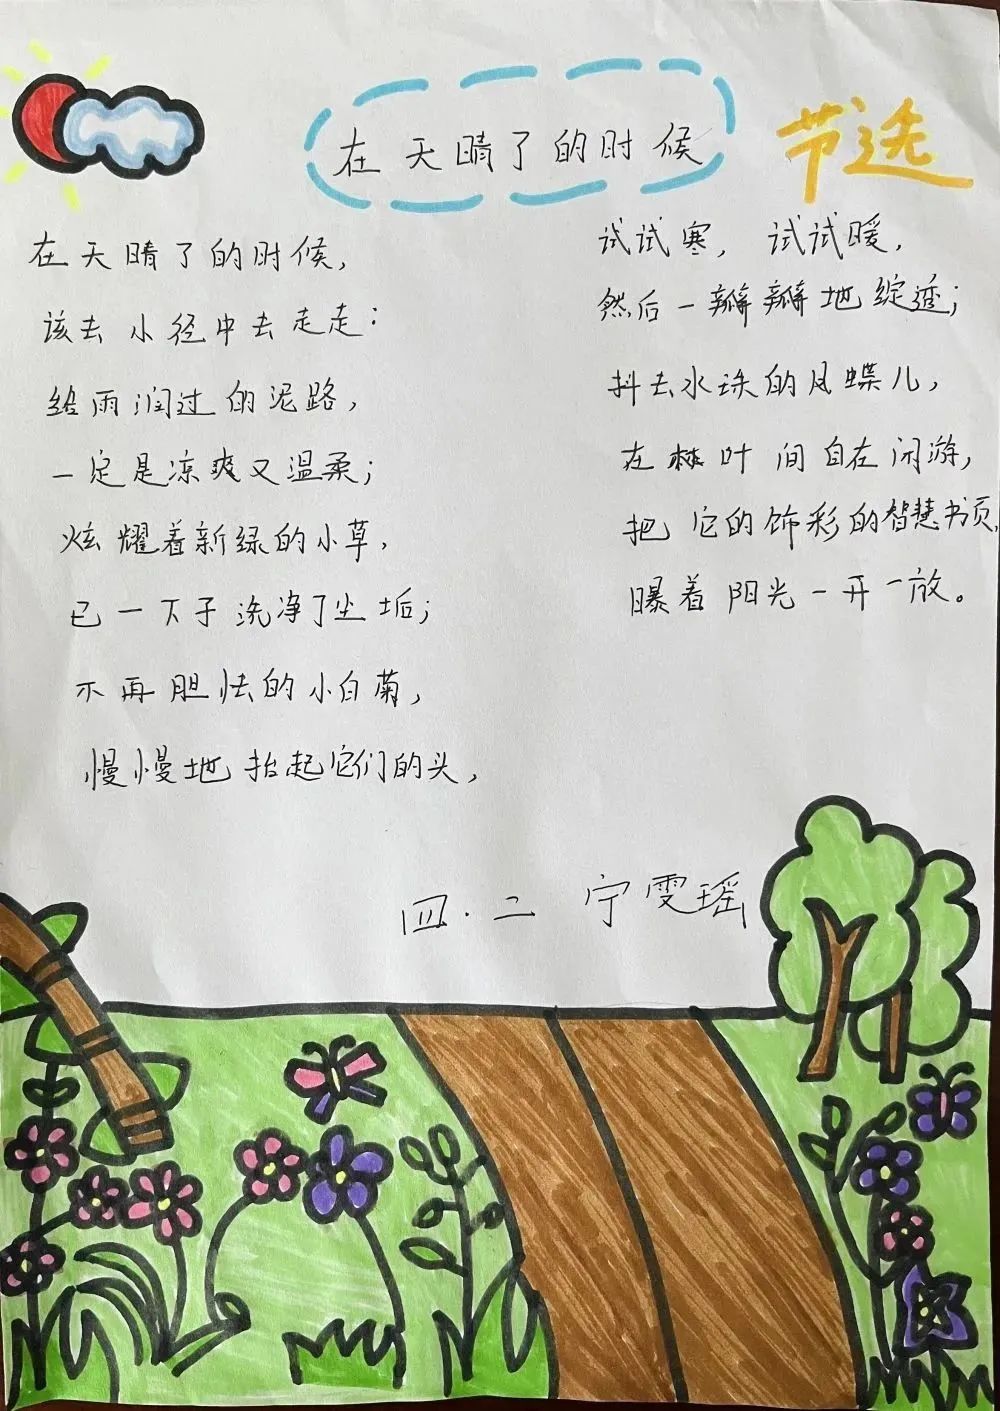 在天晴了的时候
节选
在天晴了的时候，
该去小径中去走走：
给雨润过的泥路，
一定是凉爽又温柔；
炫耀着新绿的小草，
已一下子洗净了尘垢；
不再胆怯的小白菊，
慢慢地抬起它们的头，
试试寒，试试暖，
然后一瓣瓣地绽透；
抖去水珠的凤蝶儿，
在林叶间自在闲游，
把它的饰彩的智慧书页
曝着阳光一开一放。
四·二 宁雯瑶